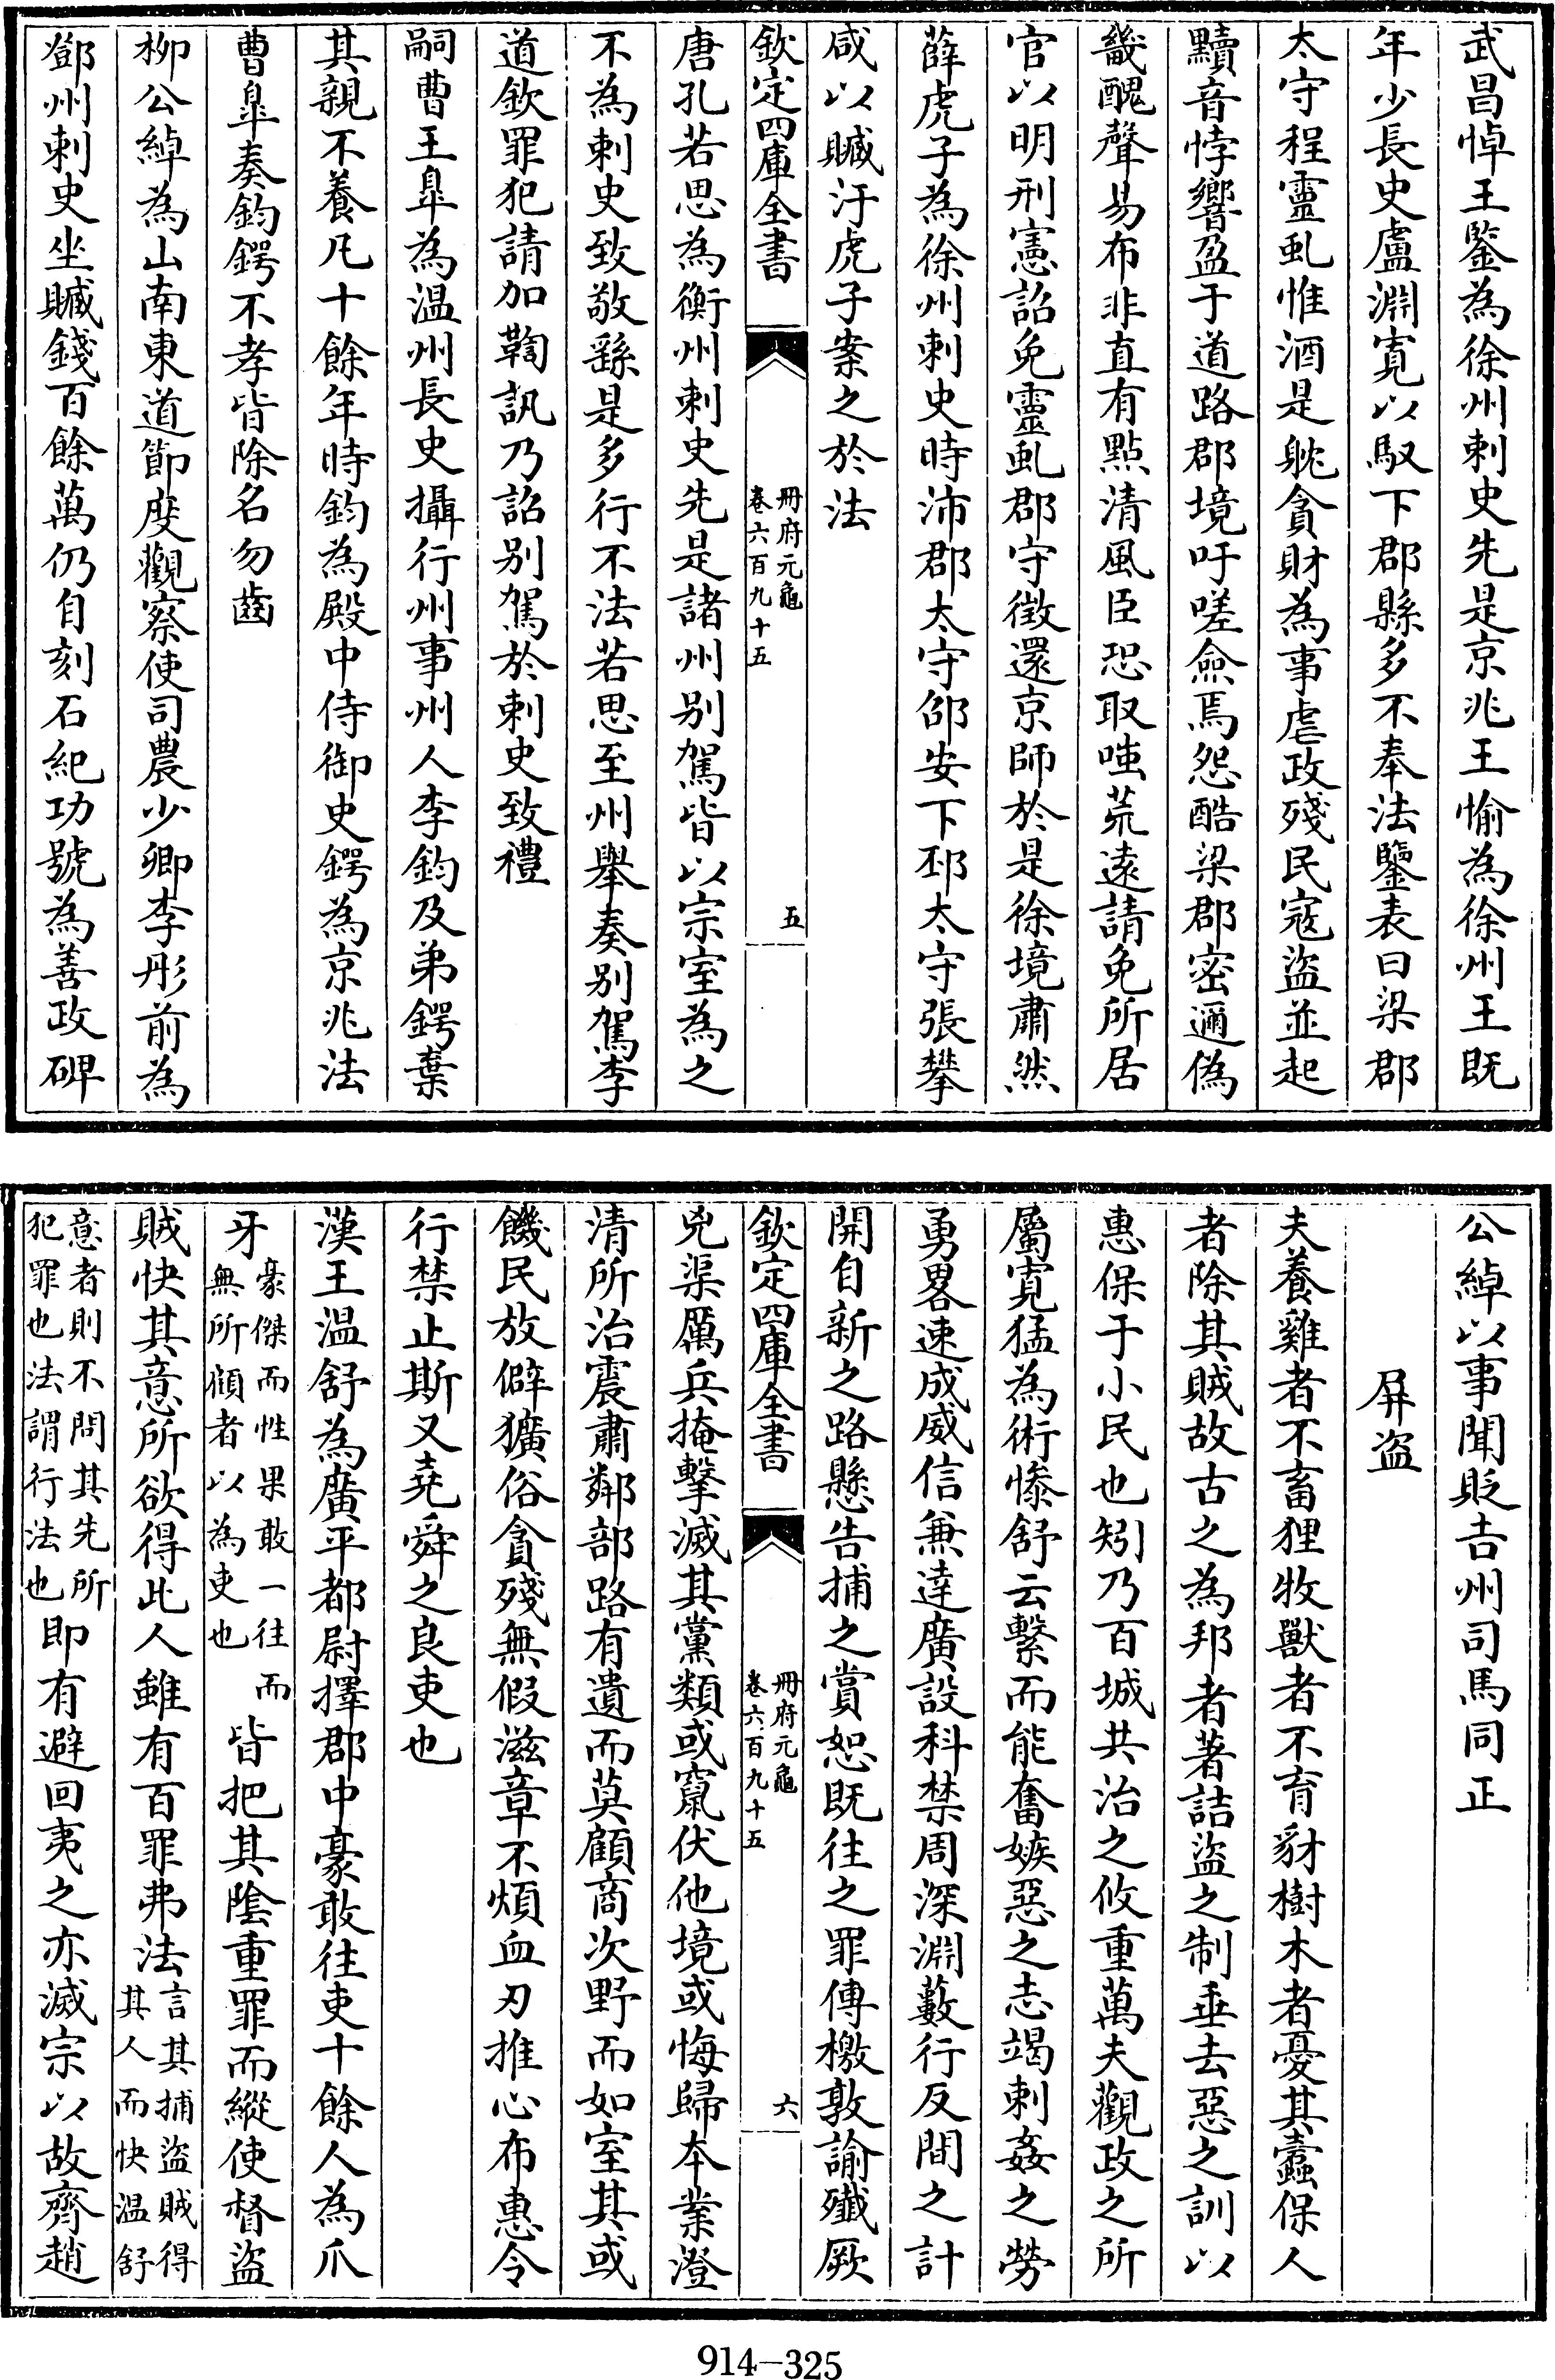 武昌悼王鑒為徐州刺史先是京兆王愉為徐州王既
年少長史盧淵寛以馭下郡縣多不奉法鑒表曰梁郡
太守程靈虬惟酒是躭貪財為事虐政殘民寇盜並起
黷音悖響盈于道路郡境吁嗟僉焉怨酷梁郡密邇偽
畿醜聲易布非直有點清風臣恐取嗤荒遠請免所居
官以明刑憲詔免靈虬郡守徵還京師於是徐境肅然
薛虎子為徐州刺史時沛郡太守邵安下邳太守張攀
咸以贓汙虎子案之於法
欽定四庫全書
冊府元龜
卷六百九十五
五
唐孔若思為衡州刺史先是諸州别駕皆以宗室為之
不為刺史致敬繇是多行不法若思至州舉奏别駕李
道欽罪犯請加鞫訊乃詔别駕於刺史致禮
嗣曹王臯為温州長史攝行州事州人李鈞及弟鍔棄
其親不養凡十餘年時鈞為殿中侍御史鍔為京兆法
曹臯奏鈞鍔不孝皆除名勿齒
柳公綽為山南東道節度觀察使司農少卿李彤前為
鄧州刺史坐贓錢百餘萬仍自刻石紀功號為善政碑
公綽以事聞貶吉州司馬同正
屏盜
夫養雞者不畜狸牧獸者不育豺樹木者憂其蠹保人
者除其賊故古之為邦者著詰盜之制垂去惡之訓以
惠保于小民也矧乃百城共治之攸重萬夫觀政之所
屬寛猛為術慘舒云繫而能奮嫉惡之志竭刺姦之勞
勇畧速成威信兼達廣設科禁周深淵藪行反間之計
開自新之路懸告捕之賞恕既往之罪傳檄敦諭殲厥
欽定四庫全書
冊府元龜
卷六百九十五
六
兇渠厲兵掩擊滅其黨類或竄伏他境或悔歸本業澄
清所治震肅鄰部路有遺而莫顧商次野而如室其或
饑民放僻獷俗貪殘無假滋章不煩血刃推心布惠令
行禁止斯又堯舜之良吏也
漢王温舒為廣平都尉擇郡中豪敢往吏十餘人為爪
牙豪傑而性果敢一往而無所顧者以為吏也皆把其陰重罪而縱使督盜
賊快其意所欲得此人雖有百罪弗法言其捕盜賊得其人而快温舒
意者則不問其先所犯罪也法謂行法也即有避回夷之亦滅宗以故齊趙
914-325